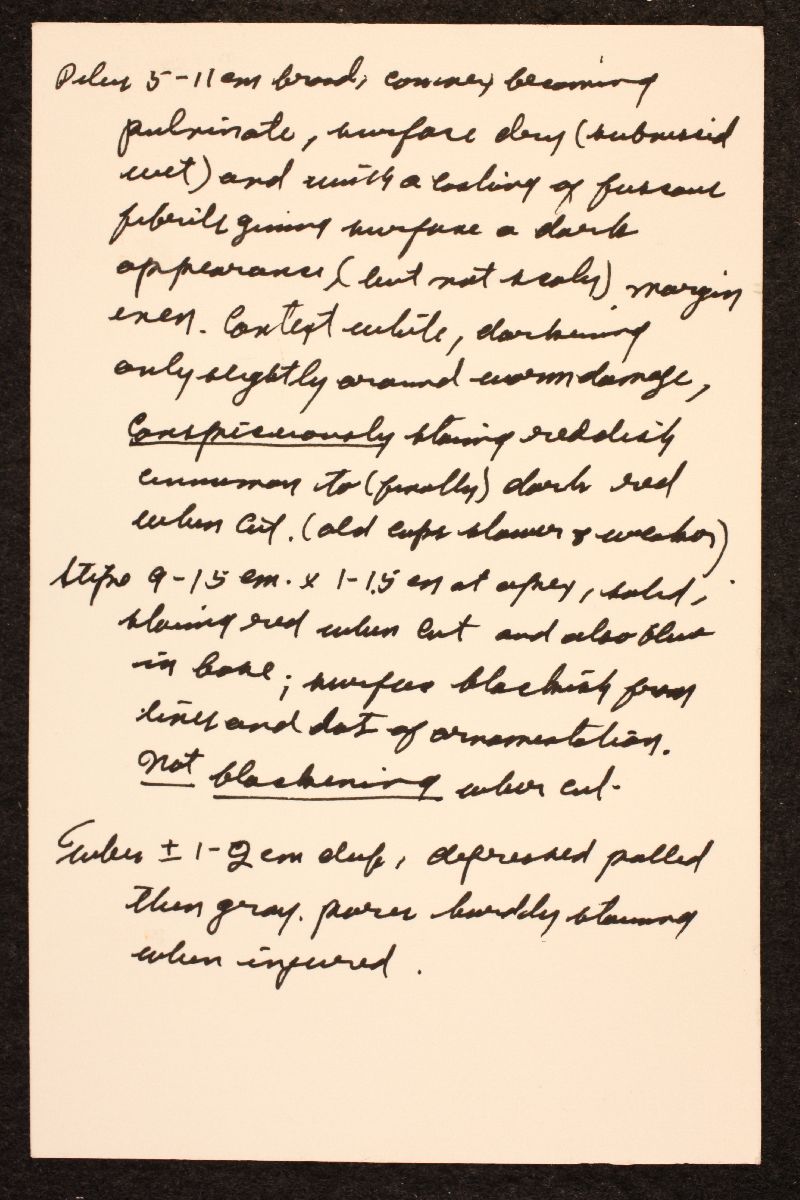 Pileus 5-11 cm broad, convex becoming
pulvinate, surface dry (subviscid
wet) and with a coating of fuscous
fibrils giving surface a dark
appearance (but not scaly) margin
even. Context white, darkening
only slightly around worm damage,
Conspicuously staining reddish
cinnamon to (finally) dark red
when cut. (old caps slower & weaker)
Stipe 9-15 cm. x 1-1.5 cm at apex, solid,
staining red when cut and also blue
in base; surface blackish from
lines and dots of ornamentation.
Not blackening when cut.
Tubes ± 1-2 cm deep, depressed pallid
then gray. pores hardly staining
when injured.